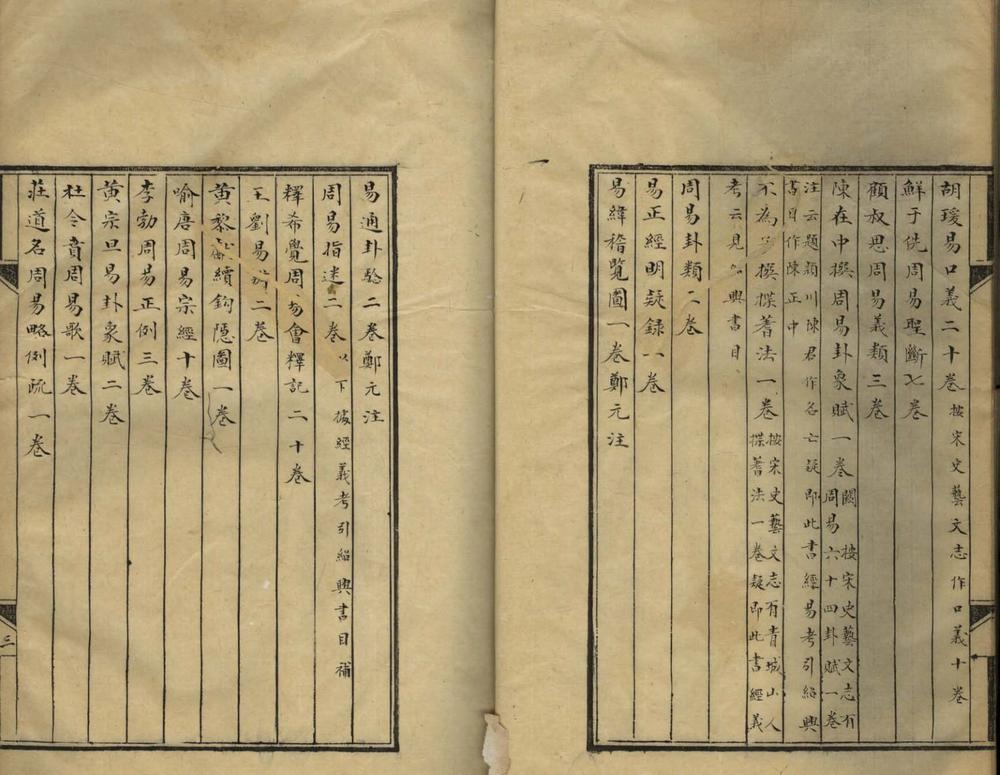 胡瑗易口義二十卷 按宋史藝文志作口義十卷
鮮于侁周易聖斷七卷
顧叔思周易義類三卷
陳在中撰周易卦象賦一卷 闕 按宋史藝文志有周易六十四卦賦一卷
注云題潁川陳君作名亡疑即此書經易考引紹興
書目作陳正中
不為子撰揲蓍法一卷 按宋史藝文志有青城山人揲蓍法一卷疑即此書經義
考云見紹興書目
周易卦類二卷
易正經明疑錄一卷
易緯稽覽圖一卷鄭元注
易通卦驗二卷鄭元注
周易指迷二卷 以下據經義考引紹興書目補
釋希覺周易會釋記二十卷
王劉易 二卷
黃黎 續鉤隱圖一卷
喻唐周易宗經十卷
李勃周易正例三卷
黃宗旦易卦象賦二卷
杜令賁周易歌一卷
莊道名周易略例疏一卷
三